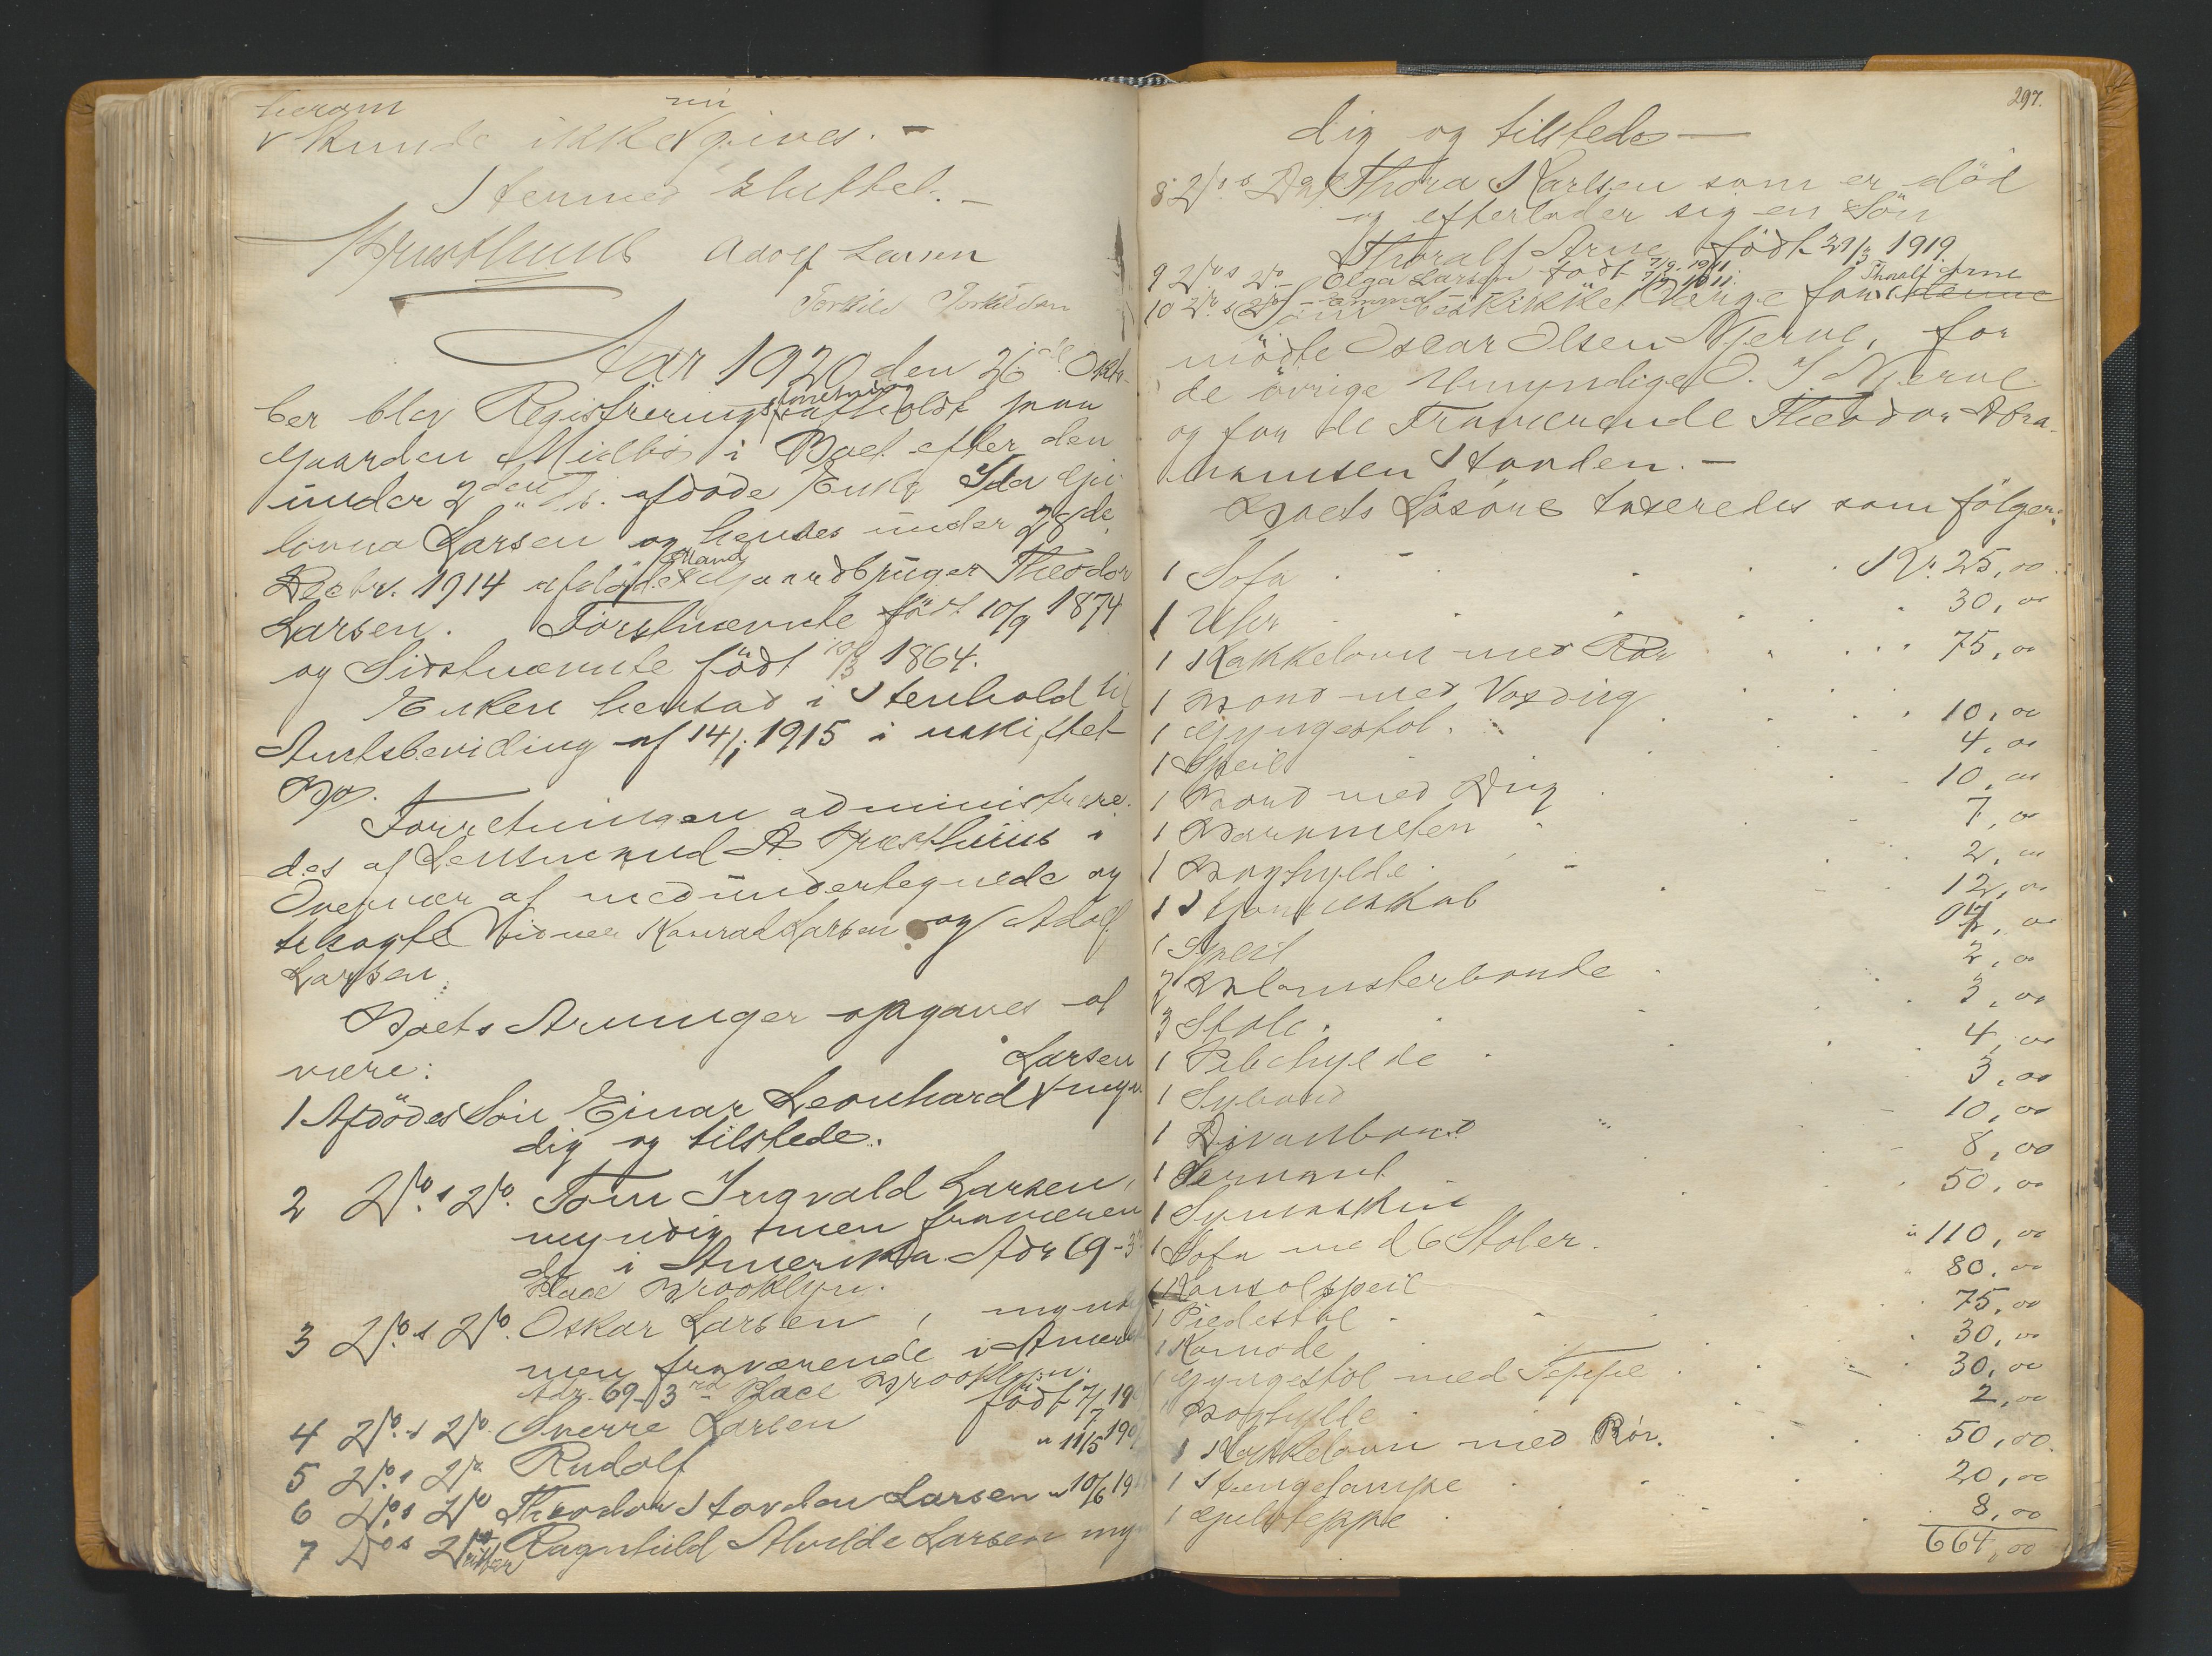 herom nu
kunde ikke gives. -
Hermed sluttet. -
Præsthuus Adolf Larsen
Torkild Torkildsen
Aar 1920 den 26de Okto-
ber blev Registreringsforretning afholdt paa
Gaarden Midbø i Boet efter den
under 2den ds. afdøde Enke Ida Gju
lovna Larsen og hendes under 28de
Decbr. 1914 afdøde Mand Gaardbruger Theodor
Larsen. Førstnævnte født 10/9 1874
og Sidstnævnte født 10/3 1864.
Enken hensad i Henhold til
Amtsbevilling af 14/1 1915 i uskiftet
Bo.
Forretningen administrere-
des af Lensmand A. Præsthuus i
Overvær af medundertegnede og
tilkaldte Vidner Konrad Larsen og Adolf
Larsen.
Boets Arvinger opgaves at
være:
Larsen
1 Afdødes Søn Einar Leonhard myn-
dig og tilstede.
2 Do. s Do. Tom Ingvald Larsen,
myndig men fraværen
de i Amerika Adr 69-3rd
Place Brooklyn.
3 Do. s Do. Oskar Larsen, myndig
men fraværende i Amerika
Adr. 69-3rd Place Brooklyn.
4 Do. s Do. Sverre Larsen født 7/7 190
5 Do. s Do Rudolf " 11/5 190
6 Do. s Do Theodor Stordan Larsen " 10/6 19
7 Dos Datter Ragnhild Alvilde Larsen myn
297.
dig og tilstede -
8 Do. s Do. Thora Karlsen som er død
og efterlader sig en Søn
Thoralf Arne født 29/3 1919.
9 Dos Do Olga Larsen født 7/9. 1911
10 Do. s Do. - Emma - 7/9 1911.
Som beskikket Verge for Thoralf Arne denne
mødte Oscar Olsen Njerve, for
de øvrige Umyndige O. J. Njerve
og for de Fraværende Theodor Abra-
hamsen Standen. -
Boets Løsøre taxeredes som følger:
1 Sofa Kr. 25,00
1 Uhr 30,00
1 Kakkelovn med Rør 75,00
1 Bord med Voxdug
1 Gyngestol. 10,00
1 Speil 4,00
1 Bord med Dug 10,00
1 Barometer 7,00
1 Boghylde 2,00
1 Hjørneskab 12,00
1 Speil
2 Blomsterborde 2,00
3 Stole. 3,00
1 Pibehylde 4,00
1 Sybord 3,00
1 Divanbord 10,00
1 Servant 8,00
1 Symaskin 50,00
1 Sofa med 6 Stoler " 110,00
1 Konsolspeil 80,00
1 Piedestal 75,00
1 Komode 30,00
1 Gyngestol med Teppe 30,00
1 Boghylde 2,00
1 Kakkelovn med Rør. 50,00.
1 Hengelampe 20,00
1 Gulvteppe 8,00
664,00